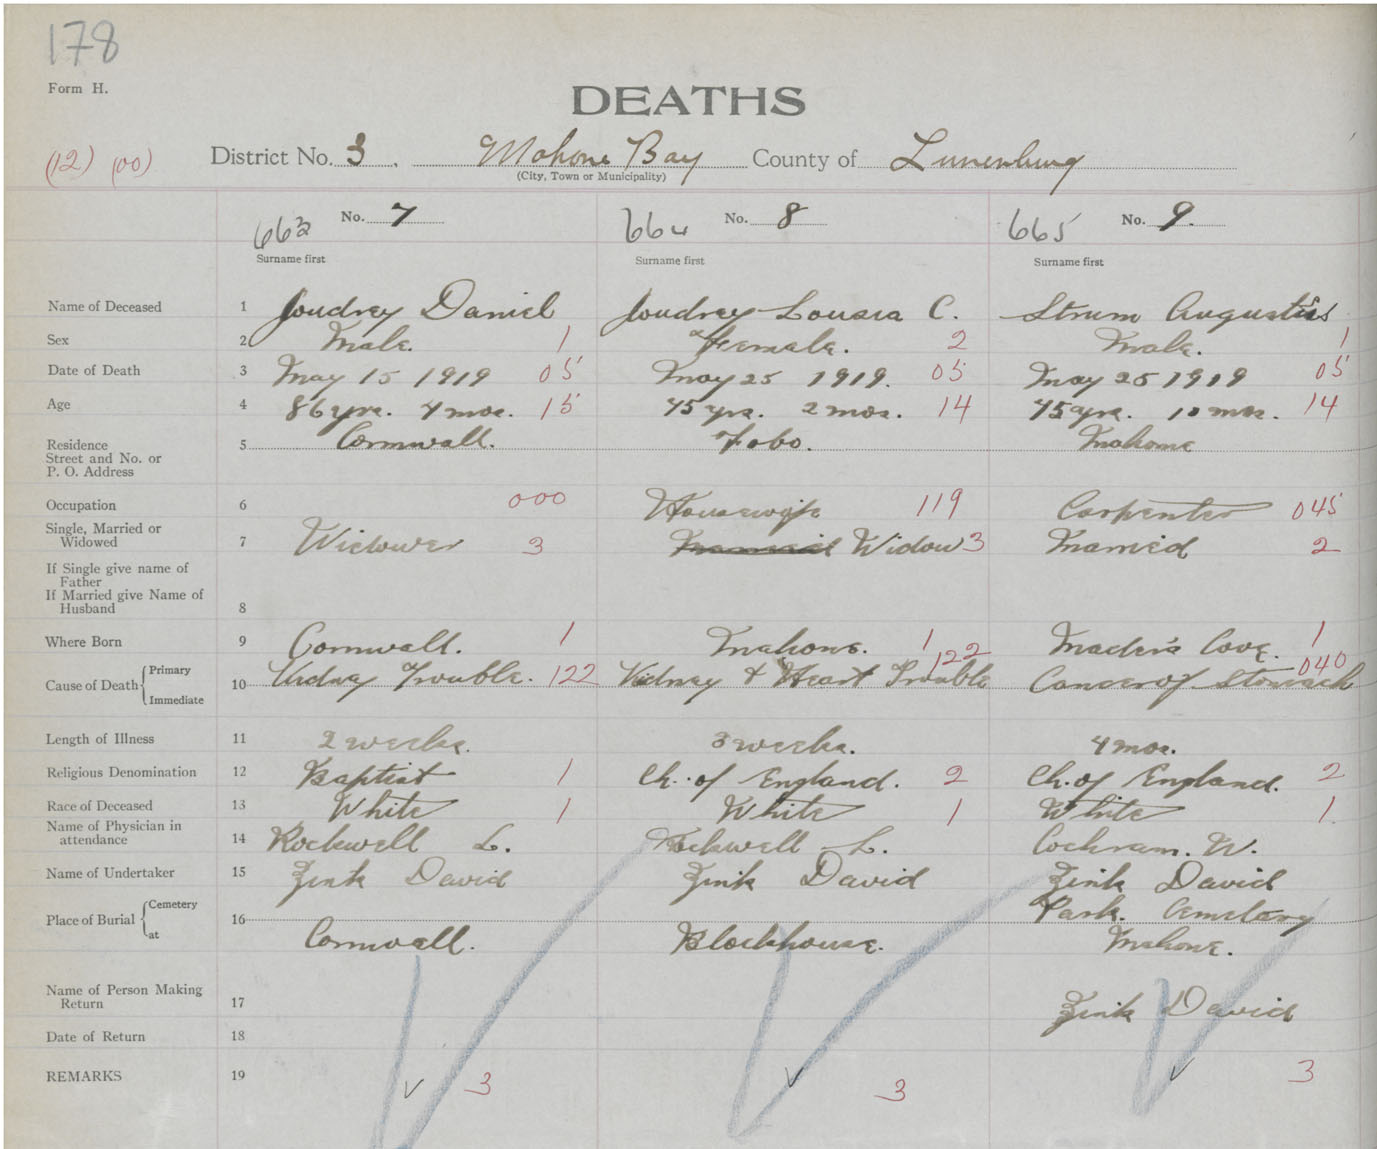 178
Form H.
DEATHS
(12) (00) District No. 3. Mahone Bay County of Lunenburg
(City, Town or Municipality)
663 No. 7 664 No. 8 665 No. 9.
Surname first Surname first Surname first
Name of Deceased 1 Joudrey Daniel Joudrey Lousia C. Strum Augustus
Sex 2 Male. 1 Female. 2 Male. 1
Date of Death 3 May 15 1919 05 May 25 1919. 05 May 25 1919 05
Age 4 86 yrs. 4 mos. 15 75 yrs. 2 mos. 14 75 yrs. 10 mos. 14
Residence 5 Cornwall. Mahone
Street and No. or
P. O. Address
Occupation 6 000 Housewife 119 Carpenter 045
Single, Married or
Widowed 7 Widower 3 Married Widow 3 Married 2
If Single give name of
Father
If Married give Name of
Husband 8
Where Born 9 Cornwall. 1 Mahone. 1 Mader's Cove. 1
Cause of Death { Primary
10 Kidney Trouble. 122 Kidney & Heart Trouble 122 Cancer of Stomach 040
Immediate
Length of Illness 11 2 weeks. 3 weeks. 4 mos.
Religious Denomination 12 Baptist 1 Ch. of England. 2 Ch. of England. 2
Race of Deceased 13 White 1 White 1 White 1
Name of Physician in
attendance 14 Rockwell L. Rockwell L. Cochram. W.
Name of Undertaker 15 Zink David Zink David Zink David
Place of Burial { Cemetery Park. Cemetary
at 16 Cornwall. Blockhouse. Mahone.
Name of Person Making
Return 17 Zink David
Date of Return 18
REMARKS 19 3 3 3